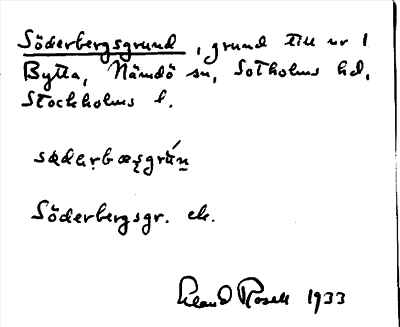 Söderbergsgrund, grund till nr 1
Bytta, Nämdö sn, Sotholms hd,
Stockholms l.
Söderbergsgr. ek.
Rosell 1933